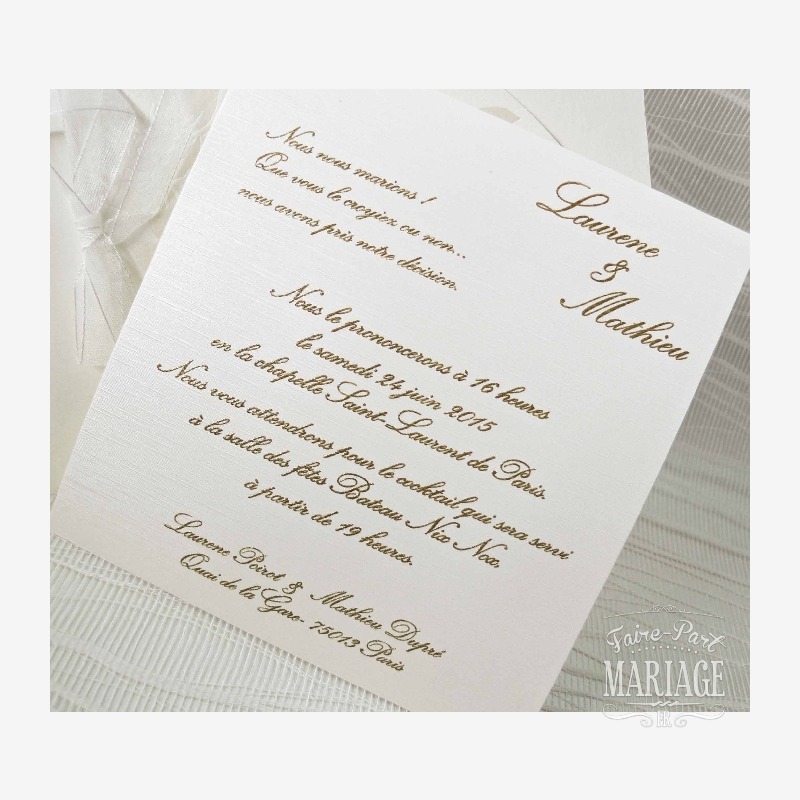 Laurene
&
Mathieu
Nous nous marions !
Que vous le croyiez ou non...
nous avons pris notre décision.
Nous le prononcerons à 16 heures
le samedi 24 juin 2015
en la chapelle Saint-Laurent de Paris.
Nous vous attendrons pour le cocktail qui sera servi
à la salle des fêtes Bateau Nix Nox,
à partir de 19 heures.
Laurene Poirot & Mathieu Dupré
Quai de la Gare- 75013 Paris
Faire-Part
MARIAGE
FR